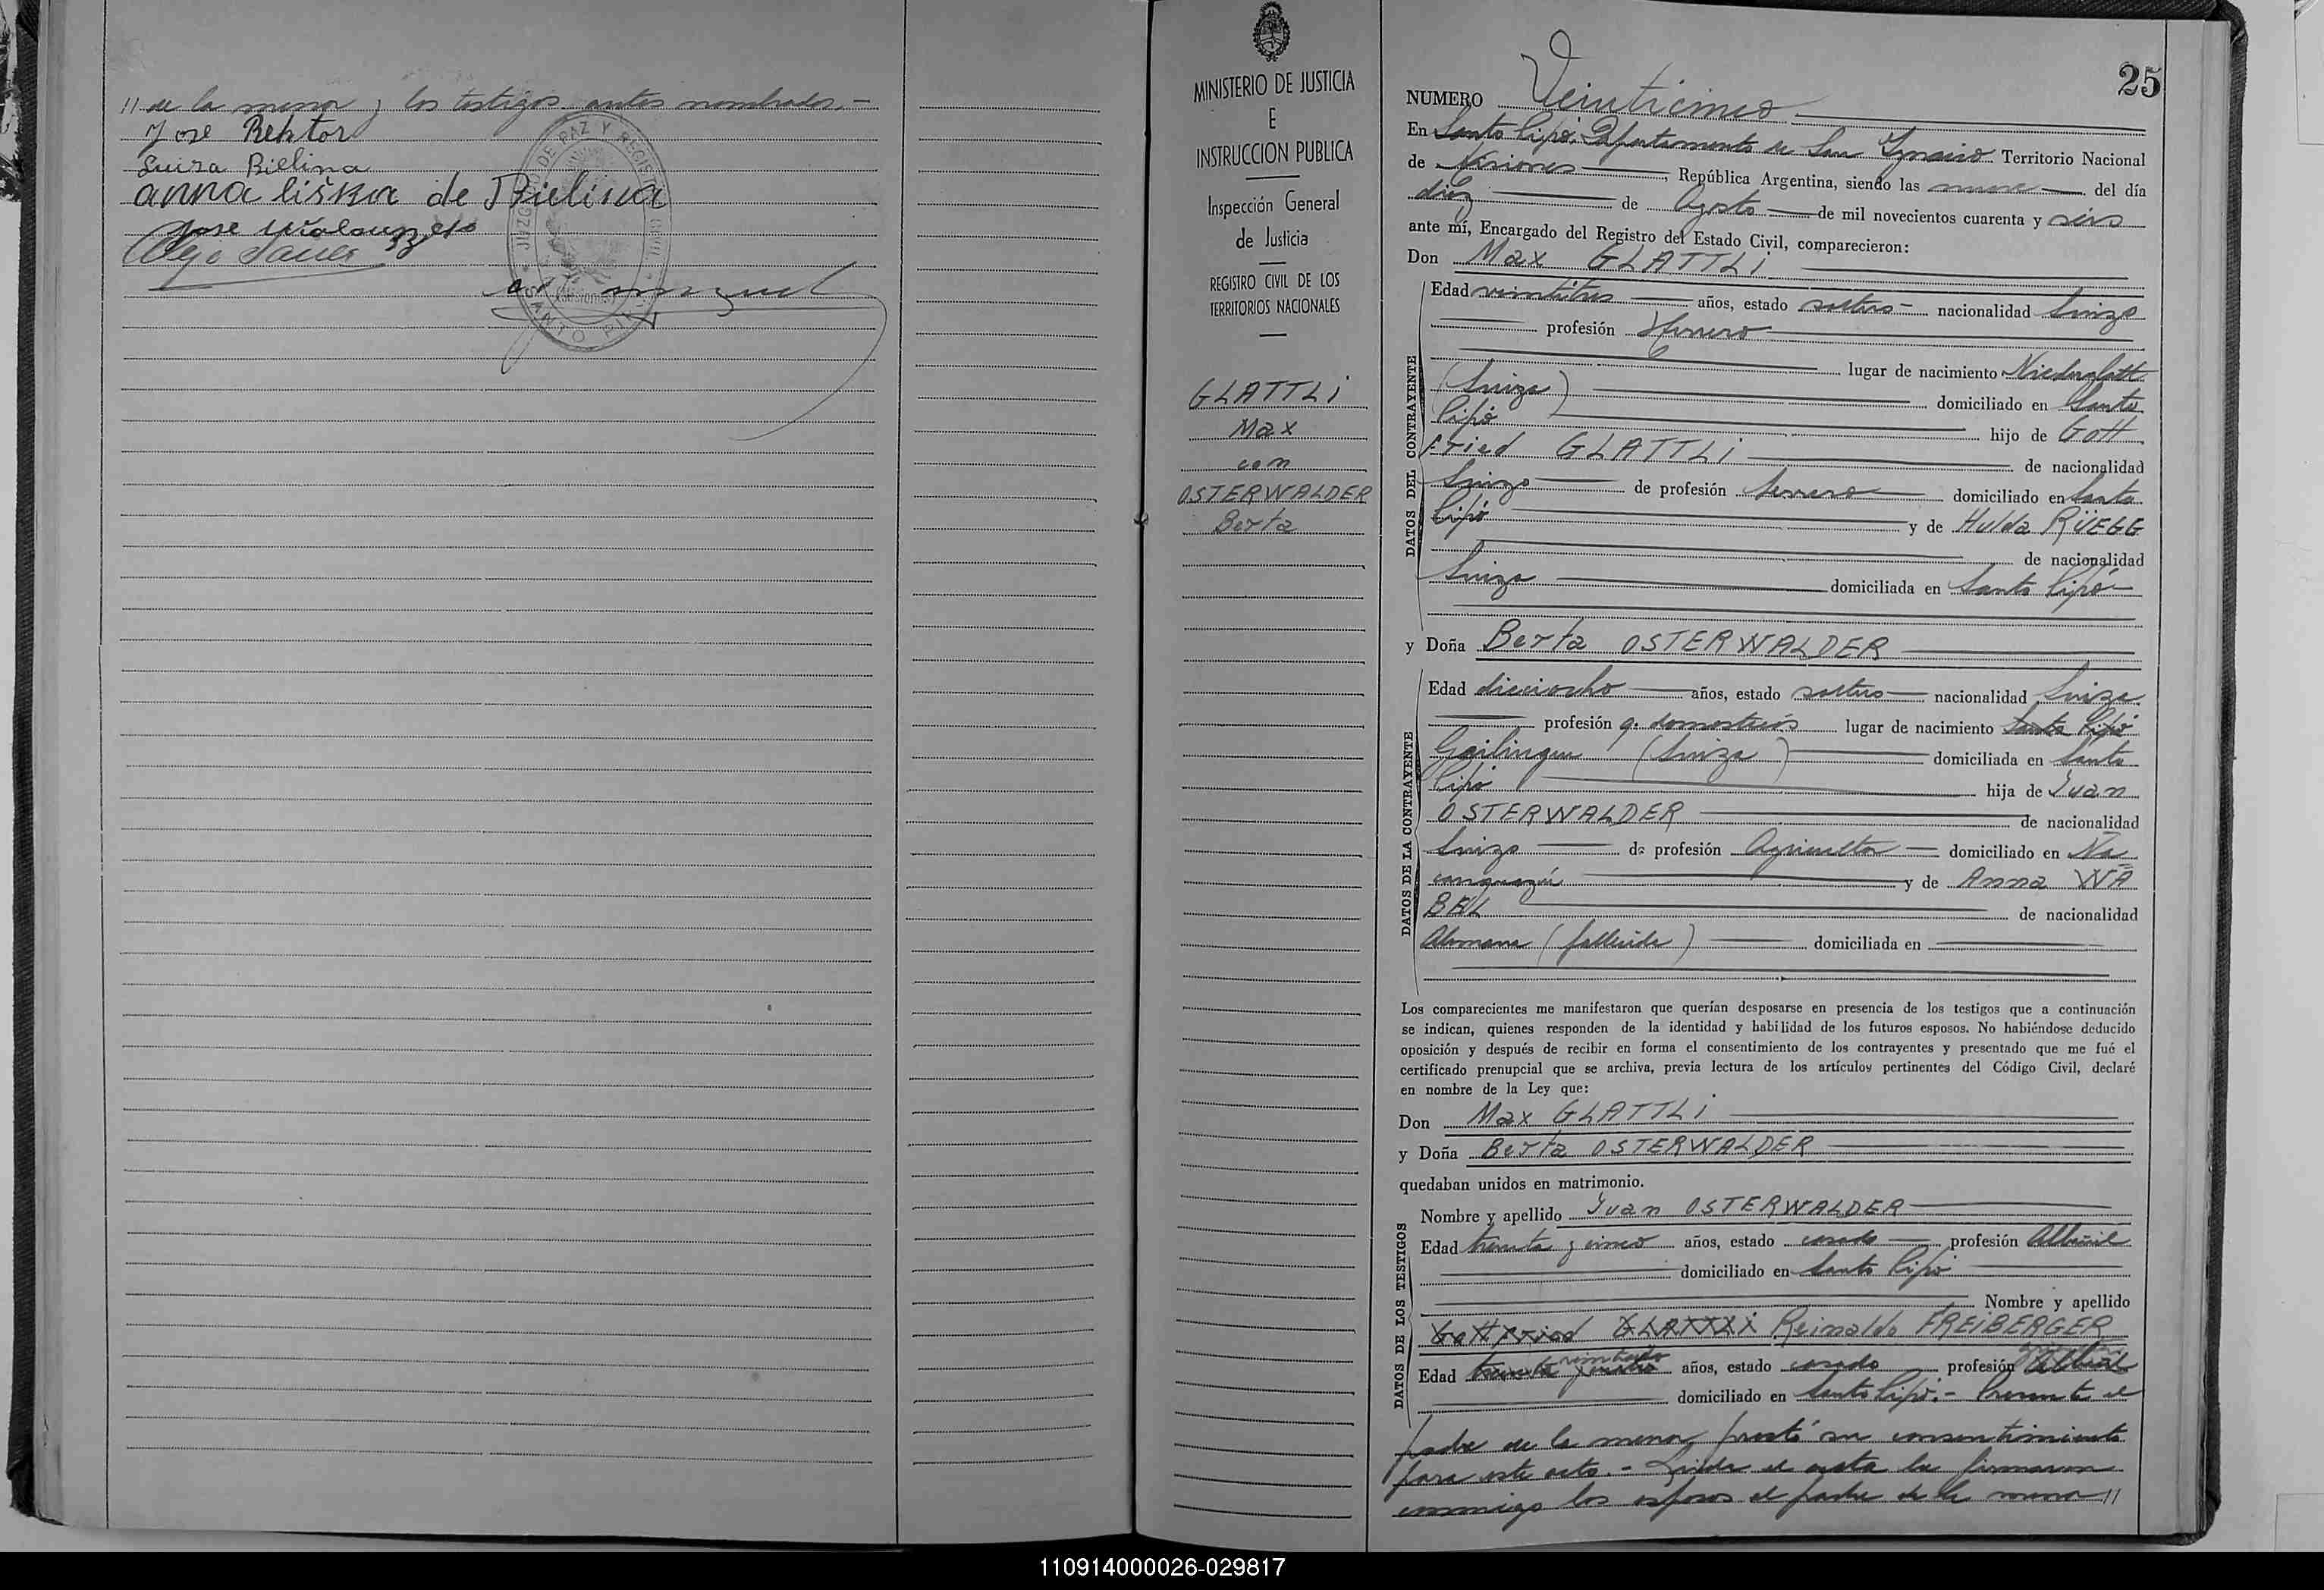 // de la menor y los testigos antes nombrados.-
José Rektor
Luiza Bielina
anna liška de Bielina
JUZGADO DE PAZ Y REGISTRO CIVIL
SANTO PIPÓ
(Misiones)
MINISTERIO DE JUSTICIA
E
INSTRUCCION PUBLICA
Inspección General
de Justicia
REGISTRO CIVIL DE LOS
TERRITORIOS NACIONALES
GLATTLI
Max
con
OSTERWALDER
Berta
25
NUMERO Veinticinco
En Santo Pipó, Departamento de San Ignacio Territorio Nacional
de Misiones, República Argentina, siendo las nueve del día
diez de Agosto de mil novecientos cuarenta y seis
ante mí, Encargado del Registro del Estado Civil, comparecieron:
Don Max GLATTLI
DATOS DEL CONTRAYENTE
Edad veintitres años, estado soltero nacionalidad Suizo
profesión Herrero
lugar de nacimiento Niederglatt
(Suiza) domiciliado en Santo
Pipó hijo de Gott
Fried GLATTLI de nacionalidad
Suizo de profesión herrero domiciliado en Santo
Pipó y de Hulda RÜEGG
de nacionalidad
Suiza domiciliada en Santo Pipó
y Doña Berta OSTERWALDER
DATOS DE LA CONTRAYENTE
Edad dieciocho años, estado soltera nacionalidad Suiza
profesión q. domesticos lugar de nacimiento Santo Pipó
Gailingen (Suiza) domiciliada en Santo
Pipó hija de Juan
OSTERWALDER de nacionalidad
Suizo de profesión Agricultor domiciliado en Ña
canguazú y de Anna WA
BEL de nacionalidad
Alemana (fallecida) domiciliada en
Los comparecientes me manifestaron que querían desposarse en presencia de los testigos que a continuación
se indican, quienes responden de la identidad y habilidad de los futuros esposos. No habiéndose deducido
oposición y después de recibir en forma el consentimiento de los contrayentes y presentado que me fué el
certificado prenupcial que se archiva, previa lectura de los artículos pertinentes del Código Civil, declaré
en nombre de la Ley que:
Don Max GLATTLI
y Doña Berta OSTERWALDER
quedaban unidos en matrimonio.
DATOS DE LOS TESTIGOS
Nombre y apellido Juan OSTERWALDER
Edad treinta y cinco años, estado casado profesión Albañil
domiciliado en Santo Pipó
Nombre y apellido
Gottfried GLATTLI Reinaldo FREIBERGER
Edad treinta y cuatro años, estado casado profesión Albañil
domiciliado en Santo Pipó.- Presente el
padre de la menor, prestó su consentimiento
para este acto.- Leida el acta la firmaron
conmigo los esposos el padre de la menor //
110914000026-029817